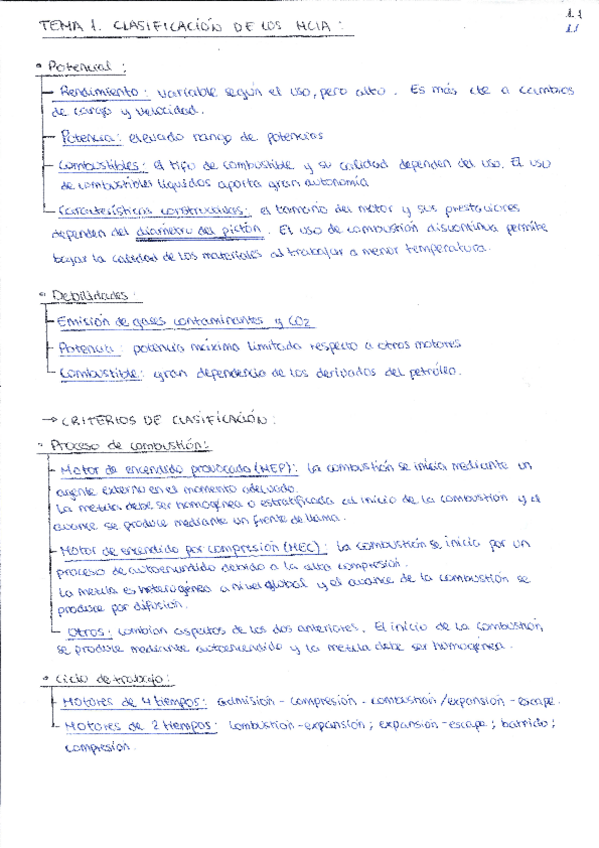 1.1
TEMA 1. CLASIFICACIÓN DE LOS MCIA:
1.1
• Potencial:
Rendimiento: variable según el uso, pero alto. Es más cte a cambios
de carga y velocidad.
Potencia: elevado rango de potencias
Combustibles: el tipo de combustible y su calidad dependen del uso. El uso
de combustibles líquidos aporta gran autonomía
Características constructivas: el tamaño del motor y sus prestaciones
dependen del diámetro del pistón. El uso de combustión discontinua permite
bajar la calidad de los materiales al trabajar a menor temperatura.
• Debilidades:
Emisión de gases contaminantes y CO2
Potencia: potencia máxima limitada respecto a otros motores
Combustible: gran dependencia de los derivados del petróleo.
→ CRITERIOS DE CLASIFICACIÓN:
• Proceso de combustión:
Motor de encendido provocado (MEP): la combustión se inicia mediante un
agente externo en el momento adecuado.
La mezcla debe ser homogénea o estratificada al inicio de la combustión y el
avance se produce mediante un frente de llama.
Motor de encendido por compresión (MEC): la combustión se inicia por un
proceso de autoencendido debido a la alta compresión.
La mezcla es heterogénea a nivel global y el avance de la combustión se
produce por difusión.
Otros: combian aspectos de los dos anteriores. El inicio de la combustión
se produce mediante autoencendido y la mezcla debe ser homogénea.
• Ciclo de trabajo:
Motores de 4 tiempos: admisión - compresión - combustión/expansión - escape.
Motores de 2 tiempos: combustión-expansión; expansión-escape; barrido;
compresión.